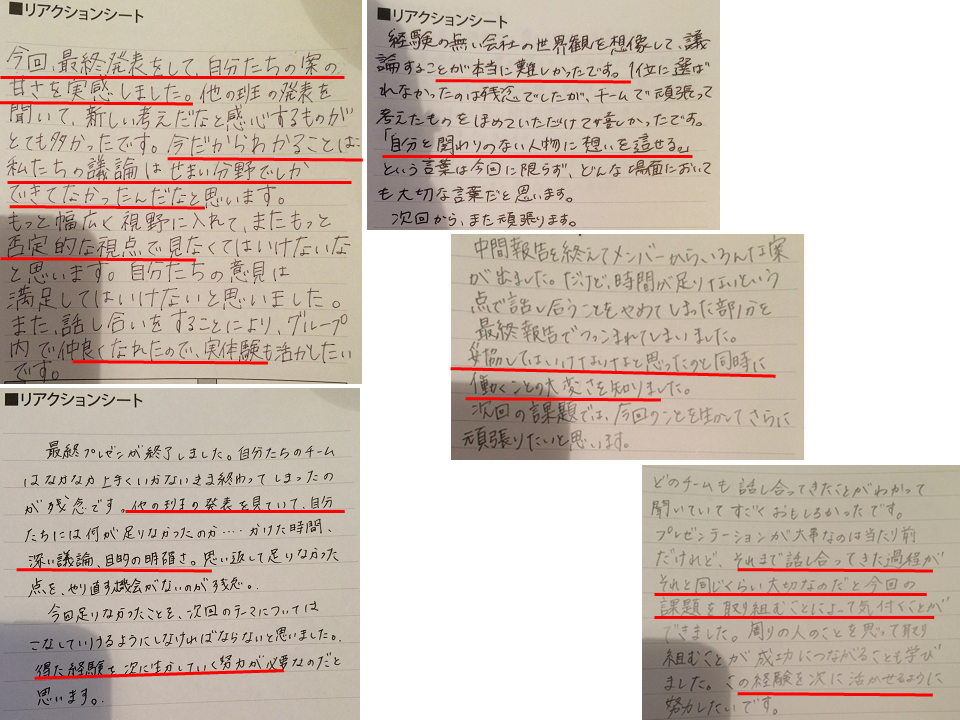 ■リアクションシート
今回、最終発表をして、自分たちの案の
甘さを実感しました。他の班の発表を
聞いて、新しい考えだなと感心するものが
とても多かったです。今だからわかることは、
私たちの議論はせまい分野でしか
できてなかったんだなと思います。
もっと幅広く視野に入れて、またもっと
否定的な視点で見なくてはいけないな
と思います。自分たちの意見は
満足してはいけないと思いました。
また、話し合いをすることにより、グループ
内で仲良くなれたので、実体験も活かしたい
です。
■リアクションシート
経験の無い会社の世界観を想像して、議
論することが本当に難しかったです。1位に選ば
れなかったのは残念でしたが、チームで頑張って
考えたものをほめていただけて嬉しかったです。
「自分と関わりのない人物に想いを這せる。」
という言葉は今回に限らず、どんな場面において
も大切な言葉だと思います。
次回から、また頑張ります。
中間報告を終えてメンバーからいろんな案
が出ました。だけど、時間が足りないという
点で話し合うことをやめてしまった部分を
最終報告でつっこまれてしまいました。
妥協してはいけないなと思ったのと同時に
働くことの大変さを知りました。
次回の課題では、今回のことを生かしてさらに
頑張りたいと思います。
■リアクションシート
最終プレゼンが終了しました。自分たちのチーム
はなかなか上手くいかないまま終わってしまったの
が残念です。他の班の発表を見ていて、自分
たちには何が足りなかったのか……かけた時間、
深い議論、目的の明確さ。思い返して足りなかった
点を、やり直す機会がないのが残念。
今回足りなかったことを、次回のテーマについては
こなしていけるようにしなければならないと思いました。
得た経験を次に生かしていく努力が必要なのだと
思います。
どのチームも話し合ってきたことがわかって
聞いていてすごくおもしろかったです。
プレゼンテーションが大事なのは当たり前
だけれど、それまで話し合ってきた過程が
それと同じくらい大切なのだと今回の
課題を取り組むことによって気付くことが
できました。周りの人のことを思って取り
組むことが成功につながることも学び
ました。この経験を次に活かせるように
努力したいです。